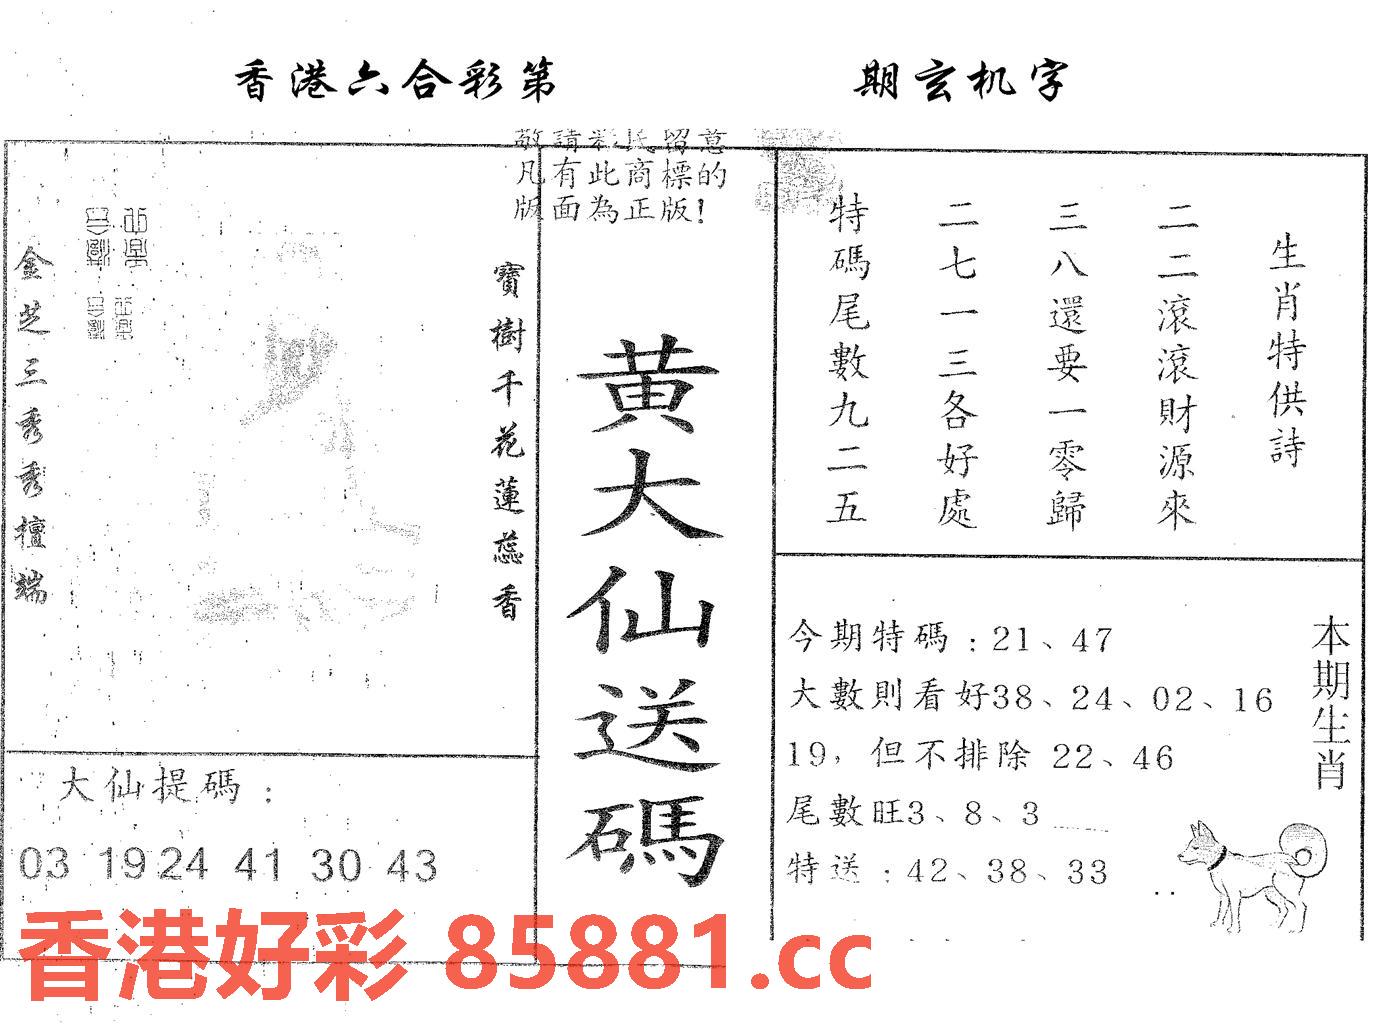 香港六合彩第 期玄机字
敬請彩民留意
凡有此商標的
版面為正版!
寶樹千花蓮蕊香
金芝三秀秀檀端
黄大仙送碼
生肖特供詩
二二滾滾財源來
三八還要一零歸
二七一三各好處
特碼尾數九二五
大仙提碼：
03 19 24 41 30 43
本期生肖
今期特碼：21、47
大數則看好38、24、02、16
19，但不排除 22、46
尾數旺3、8、3
特送：42、38、33
香港好彩 85881.cc